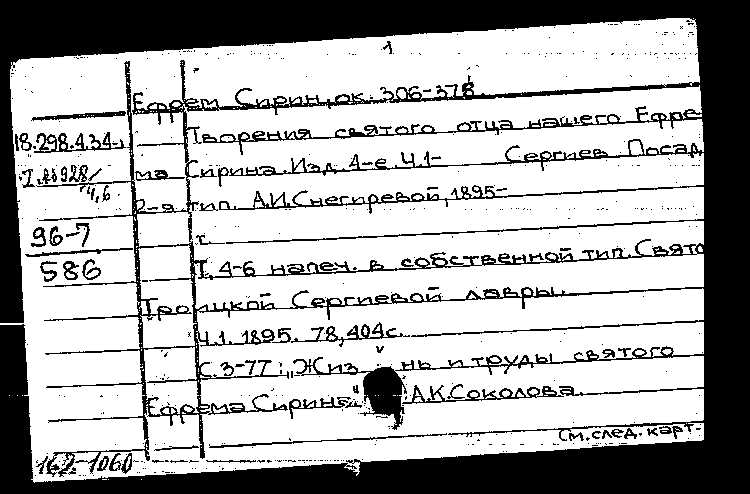 1
Ефрем Сирин, ок. 306-378.
18.298.4.34-1
Творения святого отца нашего Ефре-
ма Сирина. Изд. 4-е. Ч.1- Сергиев Посад,
4,6
2-я тип. А.И.Снегиревой, 1895-
96-7
586
т.
Т. 4-6 напеч. в собственной тип. Свято
Троицкой Сергиевой лавры.
Ч.1. 1895. 78, 404с.
С.3-77: „Жизнь и труды святого
Ефрема Сирина" А.К.Соколова.
См. след. карт.
162-1060